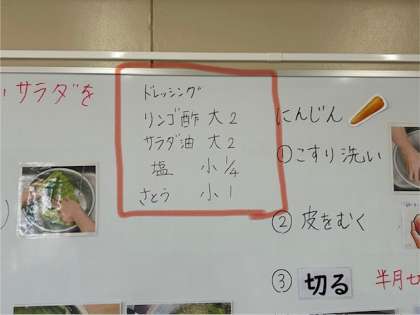 サラダを
ドレッシング
リンゴ酢 大2
サラダ油 大2
塩 小1/4
さとう 小1
にんじん
①こすり洗い
②皮をむく
③切る 半月